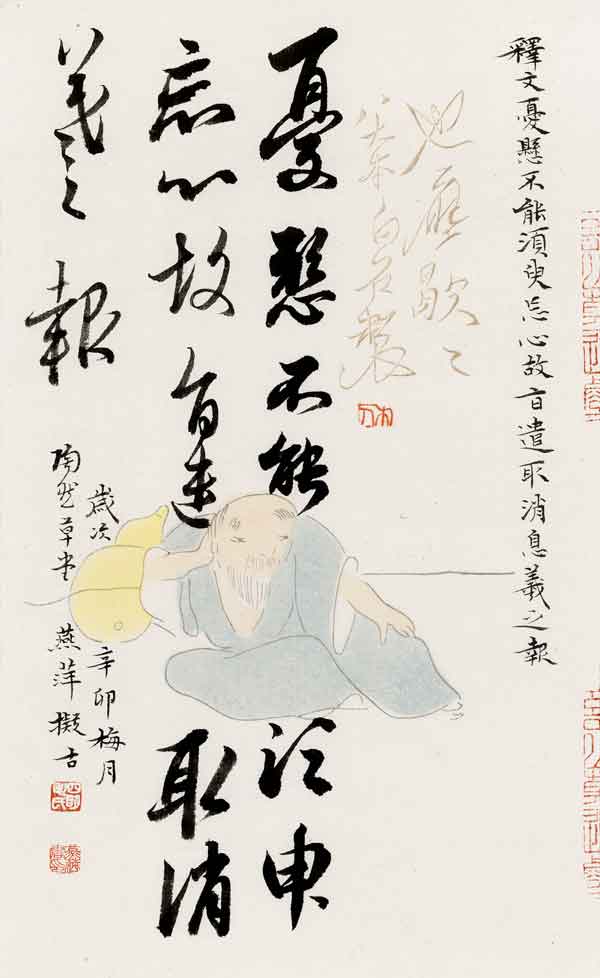 釋文憂懸不能須臾忘心故旨遣取消息羲之報
也應歇〻
白石製
憂懸不能須臾
忘心故旨遣取消
息羲之報
歲次辛卯梅月
陶然草堂燕萍擬古